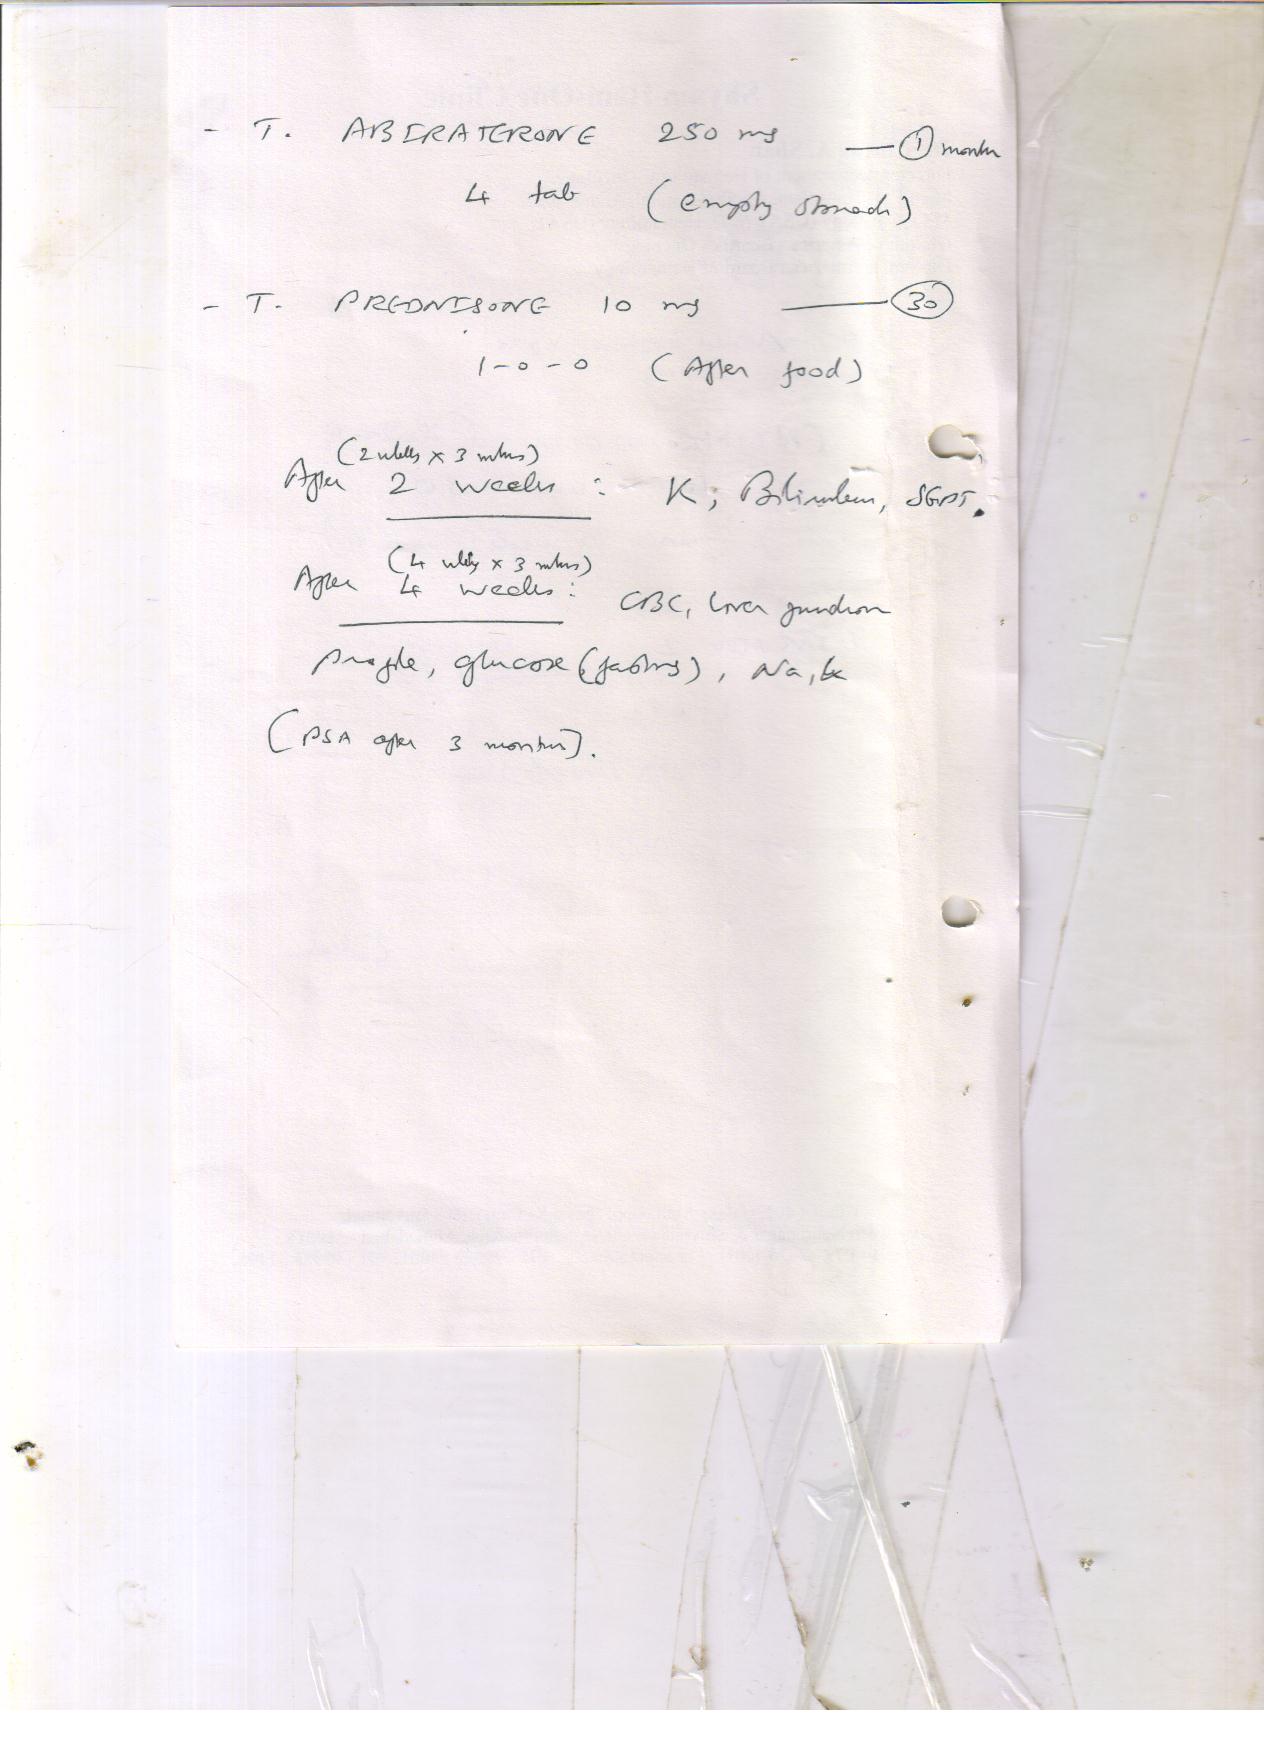 - T. ABIRATERONE 250 mg — ① month
4 tab (empty stomach)
- T. PREDNISONE 10 mg — 30
1-0-0 (After food)
(2 wkly x 3 mths)
After 2 weeks : K, Bilirubin, SGPT.
(4 wkly x 3 mths)
After 4 weeks : CBC, liver function
profile, glucose (fasting), Na, K
(PSA after 3 months).